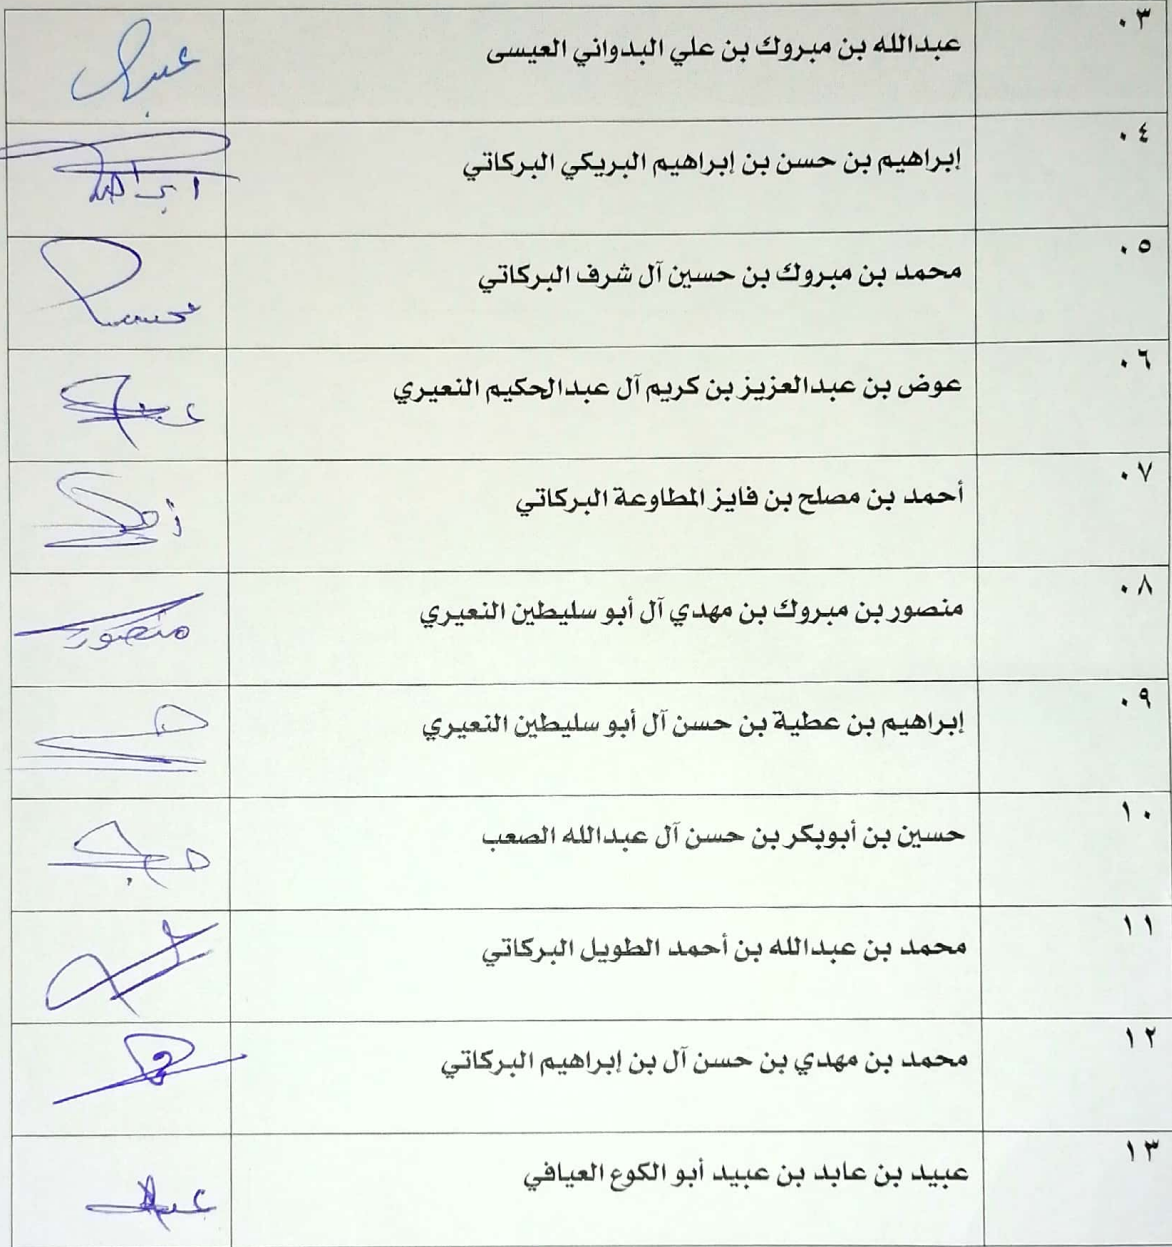 ٠٣ عبدالله بن مبروك بن علي البدواني العيسى
٠٤ إبراهيم بن حسن بن إبراهيم البريكي البركاتي
٠٥ محمد بن مبروك بن حسين آل شرف البركاتي
٠٦ عوض بن عبدالعزيز بن كريم آل عبدالحكيم النعيري
٠٧ أحمد بن مصلح بن فايز المطاوعة البركاتي
٠٨ منصور بن مبروك بن مهدي آل أبو سليطين النعيري منصور
٠٩ إبراهيم بن عطية بن حسن آل أبو سليطين النعيري
١٠ حسين بن أبوبكر بن حسن آل عبدالله الصعب
١١ محمد بن عبدالله بن أحمد الطويل البركاتي
١٢ محمد بن مهدي بن حسن آل بن إبراهيم البركاتي
١٣ عبيد بن عابد بن عبيد أبو الكوع العيافي